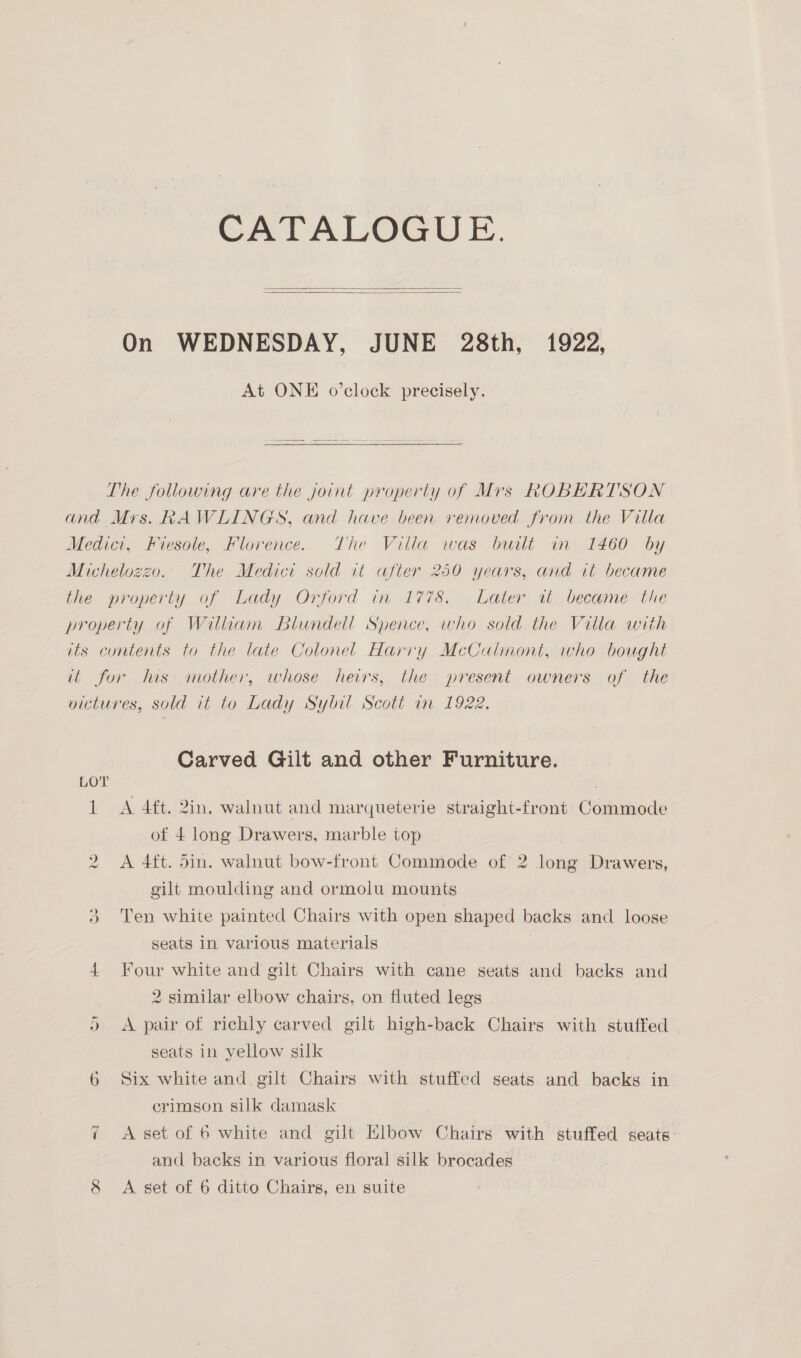 CATALOGUE.
On WEDNESDAY, JUNE 28th, 1922,
At ONE o'clock precisely.
The following are the joint property of Mrs ROBERTSON
and Mrs. RAWLINGS, and have been removed from the Villa
Medici, Fiesole, Florence. The Villa was built in 1460 by
Michelozzo. The Medici sold it after 250 years, and it became
the property of Lady Orford in 1778. Later it became the
property of William Blundell Spence, who sold the Villa with
its contents to the late Colonel Harry McCalmont, who bought
it for his mother, whose heirs, the present owners of the
pictures, sold it to Lady Sybil Scott in 1922.
Carved Gilt and other Furniture.
LOT
1 A 4ft. 2in. walnut and marqueterie straight-front Commode
of 4 long Drawers, marble top
2 A 4ft. 5in. walnut bow-front Commode of 2 long Drawers,
gilt moulding and ormolu mounts
3 Ten white painted Chairs with open shaped backs and loose
seats in various materials
4 Four white and gilt Chairs with cane seats and backs and
2 similar elbow chairs, on fluted legs
5 A pair of richly carved gilt high-back Chairs with stuffed
seats in yellow silk
6 Six white and gilt Chairs with stuffed seats and backs in
crimson silk damask
7 A set of 6 white and gilt Elbow Chairs with stuffed seats
and backs in various floral silk brocades
8 A set of 6 ditto Chairs, en suite